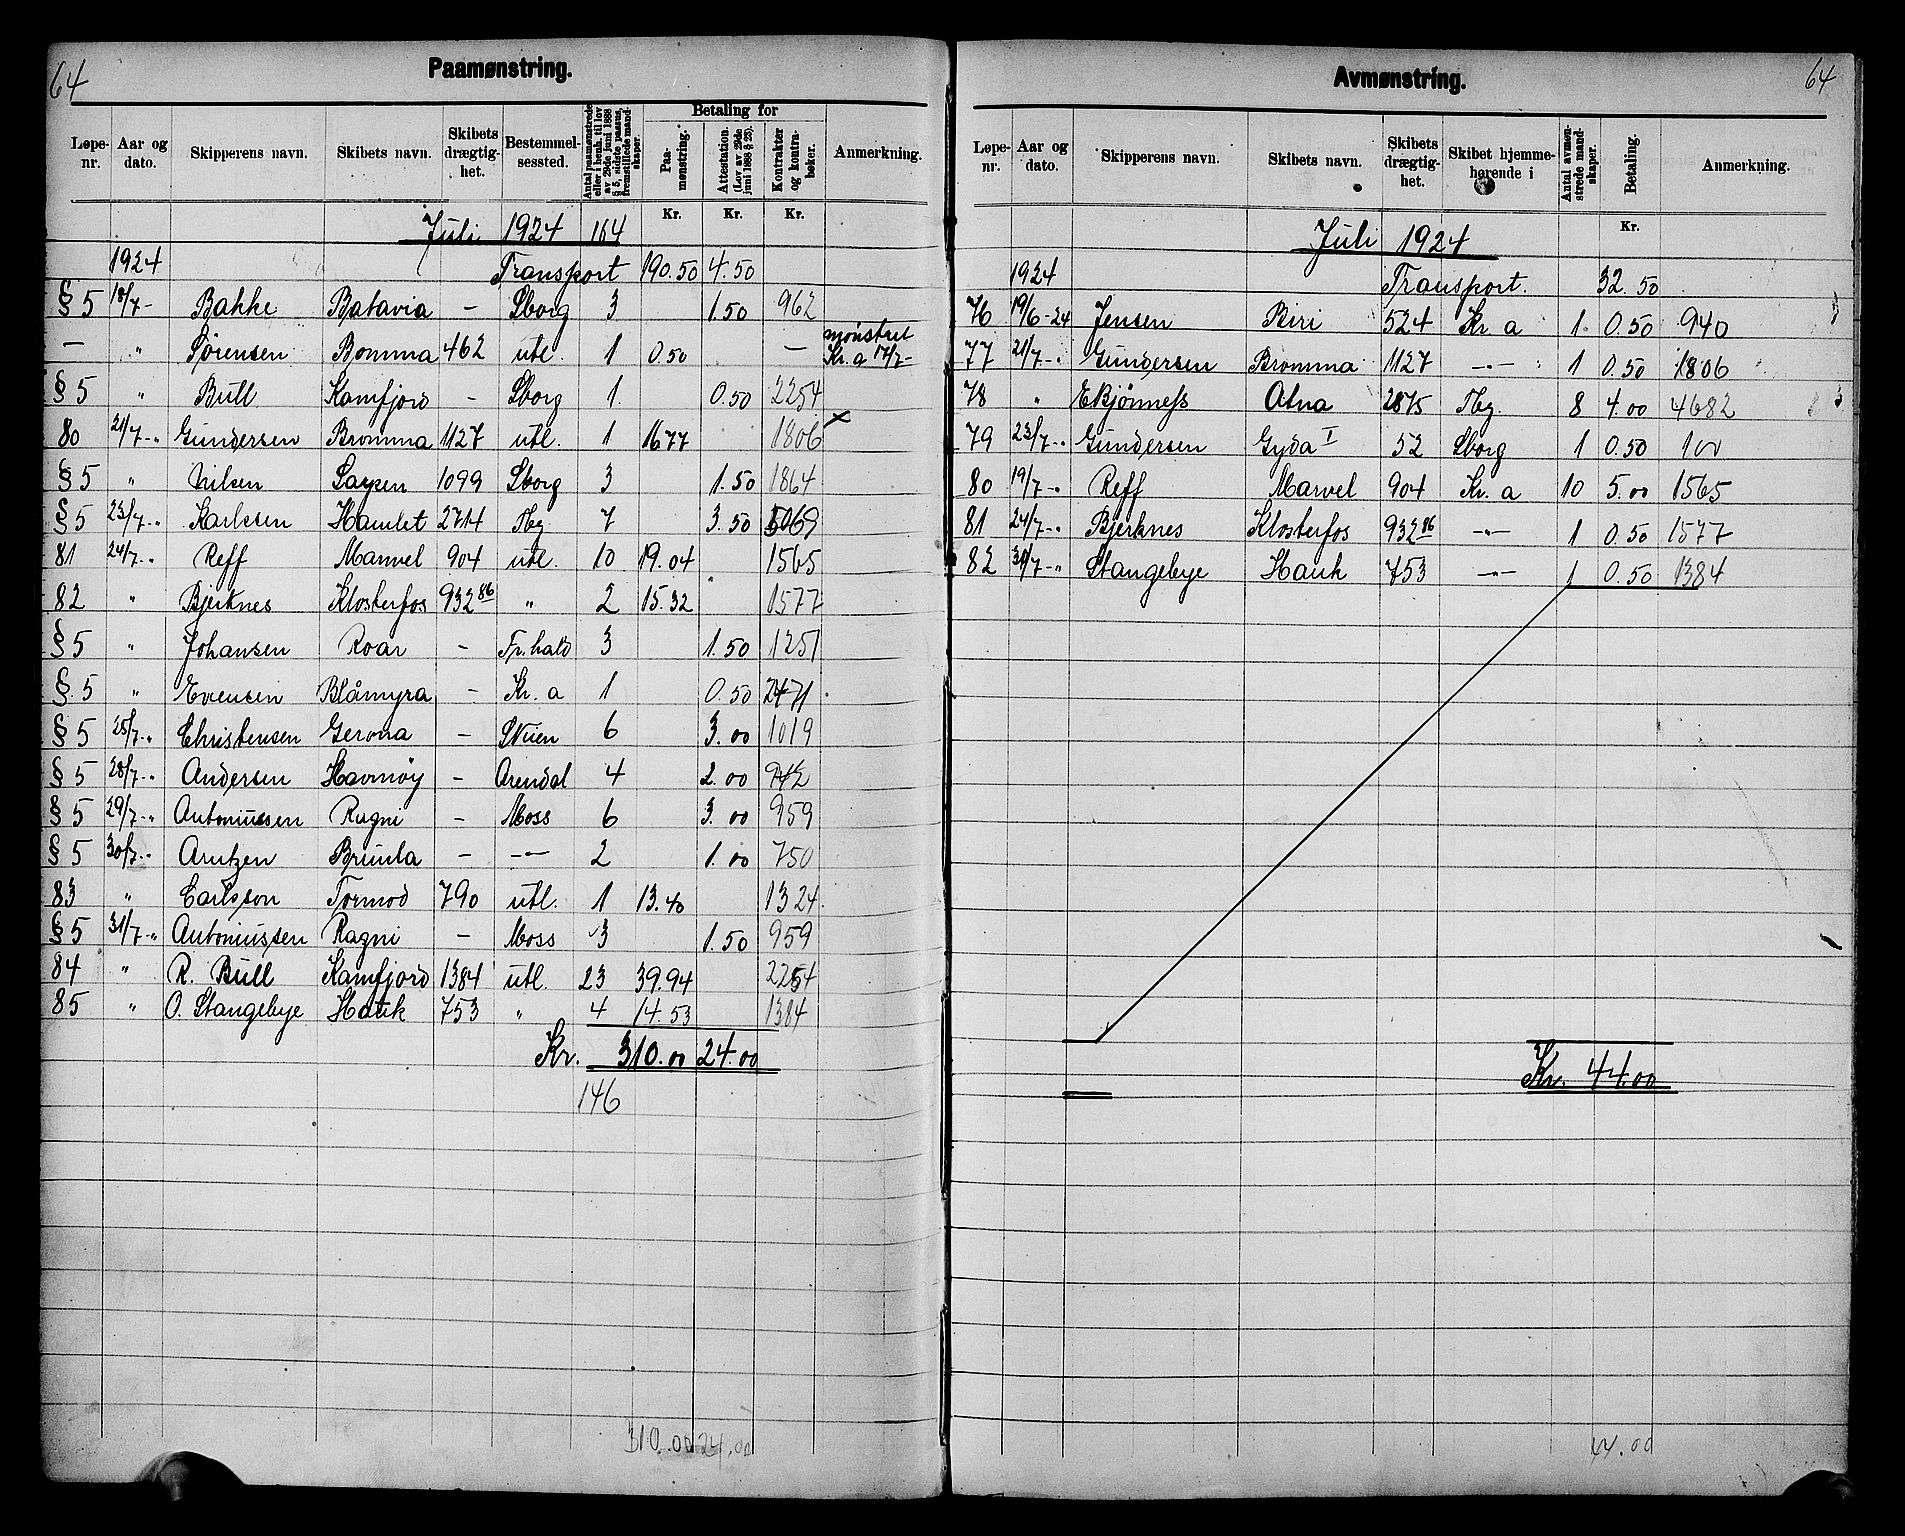 64
Paamønstring.
Løpe-nr. Aar og dato. Skipperens navn. Skibets navn. Skibets drægtig-het. Bestemmel-sessted. Antal paamønstrede eller i henh. til lov av 29de juni 1888 § 5, sidste passus, fremstillede mand-skaper. Betaling for Paa-mønstring. Attestation. (Lov av 29de juni 1888 § 23). Kontrakter og kontra-bøker. Anmerkning.
Kr. Kr. Kr.
Juli 1924 164
1924 Transport 190.50 4.50
§ 5 18/7 - Bakke Batavia - Sborg 3 1.50 962
— " Sørensen Bomma 462 utl. 1 0.50 — mønstret Kr. a 17/7-
§ 5 " Bull Kamfjord - Sborg 1 0.50 2254
80 21/7-" Gundersen Bromma 1127 utl. 1 16.77 1806 x
§ 5 " Nilsen 1099 Sborg 3 1.50 1864
§ 5 23/7-" Karlssen Hamlet 2714 Tbg 7 3.50 5069
81 24/7-" Reff Marvel 904 utl. 10 19.04 1565
82 " Bjerknes Klosterfos 932 86 " 2 15.32 1577
§ 5 " Johansen Roar - Fr. hald 3 1.50 1251
§. 5 " Evensen Blåmyra - Kr. a 1 0.50 2471
§ 5 25/7-" Christensen Gerona - Skien 6 3.00 1019
§ 5 28/7-" Andersen Havmøy - Arendal 4 2.00 942
§ 5 29/7-" Antoniussen Ragni - Moss 6 3.00 959
§ 5 30/7-" Arntzen Brunla - -"- 2 1.00 750
83 " Carlsson Tormod 790 utl. 1 13.40 1324
§ 5 31/7-" Antoniussen Ragni - Moss 3 1.50 959
84 " R. Bull Kamfjord 1384 utl. 23 39.94 2254
85 " O. Stangebye Hauk 753 " 4 14.53 1384
Kr. 310.00 24.00
146
310.00 24.00
64
Avmønstring.
Løpe-nr. Aar og dato. Skipperens navn. Skibets navn. Skibets drægtig-het. Skibet hjemme-hørende i Antal avmøn-strede mand-skaper. Betaling. Anmerkning.
Kr.
Juli 1924
1924 Transport. 32.50
76 19/6-24 Jensen Biri 524 Kr a 1 0.50 940
77 21/7-" Gundersen Bromma 1127 -"- 1 0.50 1806
78 " Ekjønness Atna 2875 Tbg. 8 4.00 4682
79 23/7-" Gundersen Gyda I 52 Sborg 1 0.50 100
80 19/7-" Reff Marvel 904 Kr. a 10 5.00 1565
81 24/7-" Bjerknes Klosterfos 932 86 -"- 1 0.50 1577
82 31/7-" Stangebye Hauk 753 -"- 1 0.50 1384
Kr. 44.00
44.00